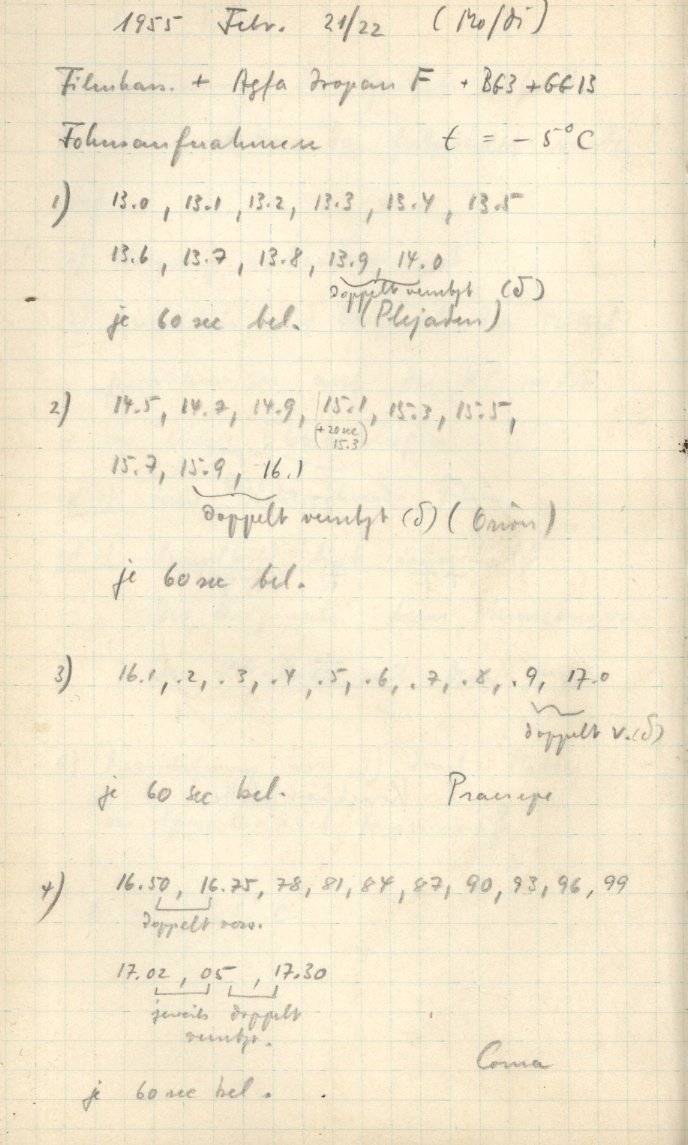 1955 Febr. 21/22 (Mo/Di)
Filmkass. + Agfa Isopan F + BG3 + GG13
Fokusaufnahmen t = -5°C
1) 13.0, 13.1, 13.2, 13.3, 13.4, 13.5
13.6, 13.7, 13.8, 13.9, 14.0
doppelt versetzt (δ)
je 60 sec bel. (Plejaden)
2) 14.5, 14.7, 14.9, 15.1, 15.3, 15.5,
(+20 sec
15.3)
15.7, 15.9, 16.1
doppelt versetzt (δ) (Orion)
je 60 sec bel.
3) 16.1, .2, .3, .4, .5, .6, .7, .8, .9, 17.0
doppelt v. (δ)
je 60 sec bel. Praesepe
4) 16.50, 16.75, 78, 81, 84, 87, 90, 93, 96, 99
doppelt vers.
17.02, 05, 17.30
jeweils doppelt
versetzt.
Coma
je 60 sec bel.